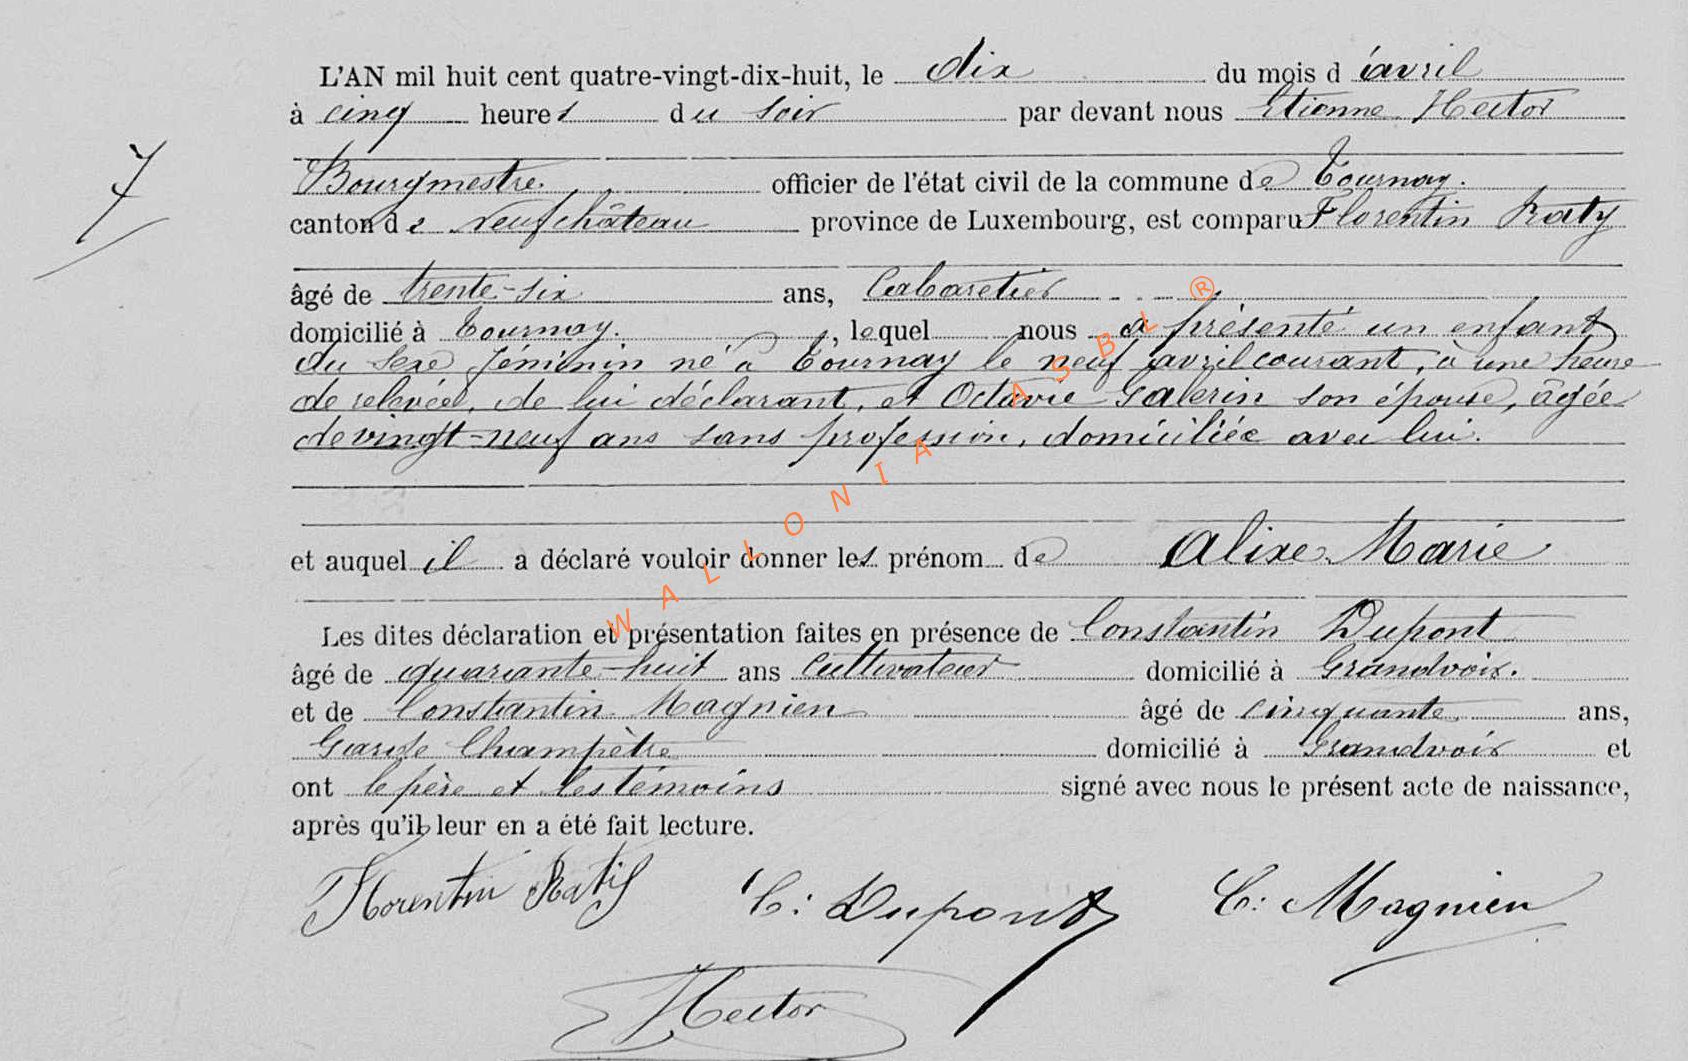 L'AN mil huit cent quatre-vingt-dix-huit, le dix du mois d'avril
à cinq heures du soir par devant nous Etienne Hector
7
Bourgmestre officier de l'état civil de la commune de Tournay.
canton de Neufchâteau province de Luxembourg, est comparu Florentin Raty
âgé de trente-six ans, Cabaretier
domicilié à Tournay. , lequel nous a présenté un enfant
du sexe féminin né à Tournay le neuf avril courant, à une heure
de relevée, de lui déclarant, et Octavie Galerin son épouse, âgée
de vingt-neuf ans sans profession, domiciliée avec lui.
et auquel il a déclaré vouloir donner les prénom de Alixe Marie
Les dites déclaration et présentation faites en présence de Constantin Dupont
âgé de quarante-huit ans Cultivateur domicilié à Grandvoir.
et de Constantin Magnien âgé de cinquante ans,
Garde Champêtre domicilié à Grandvoir et
ont le père et les témoins signé avec nous le présent acte de naissance,
après qu'il leur en a été fait lecture.
Florentin Raty C: Dupont C: Magnien
Hector
WALLONIA ASBL ®